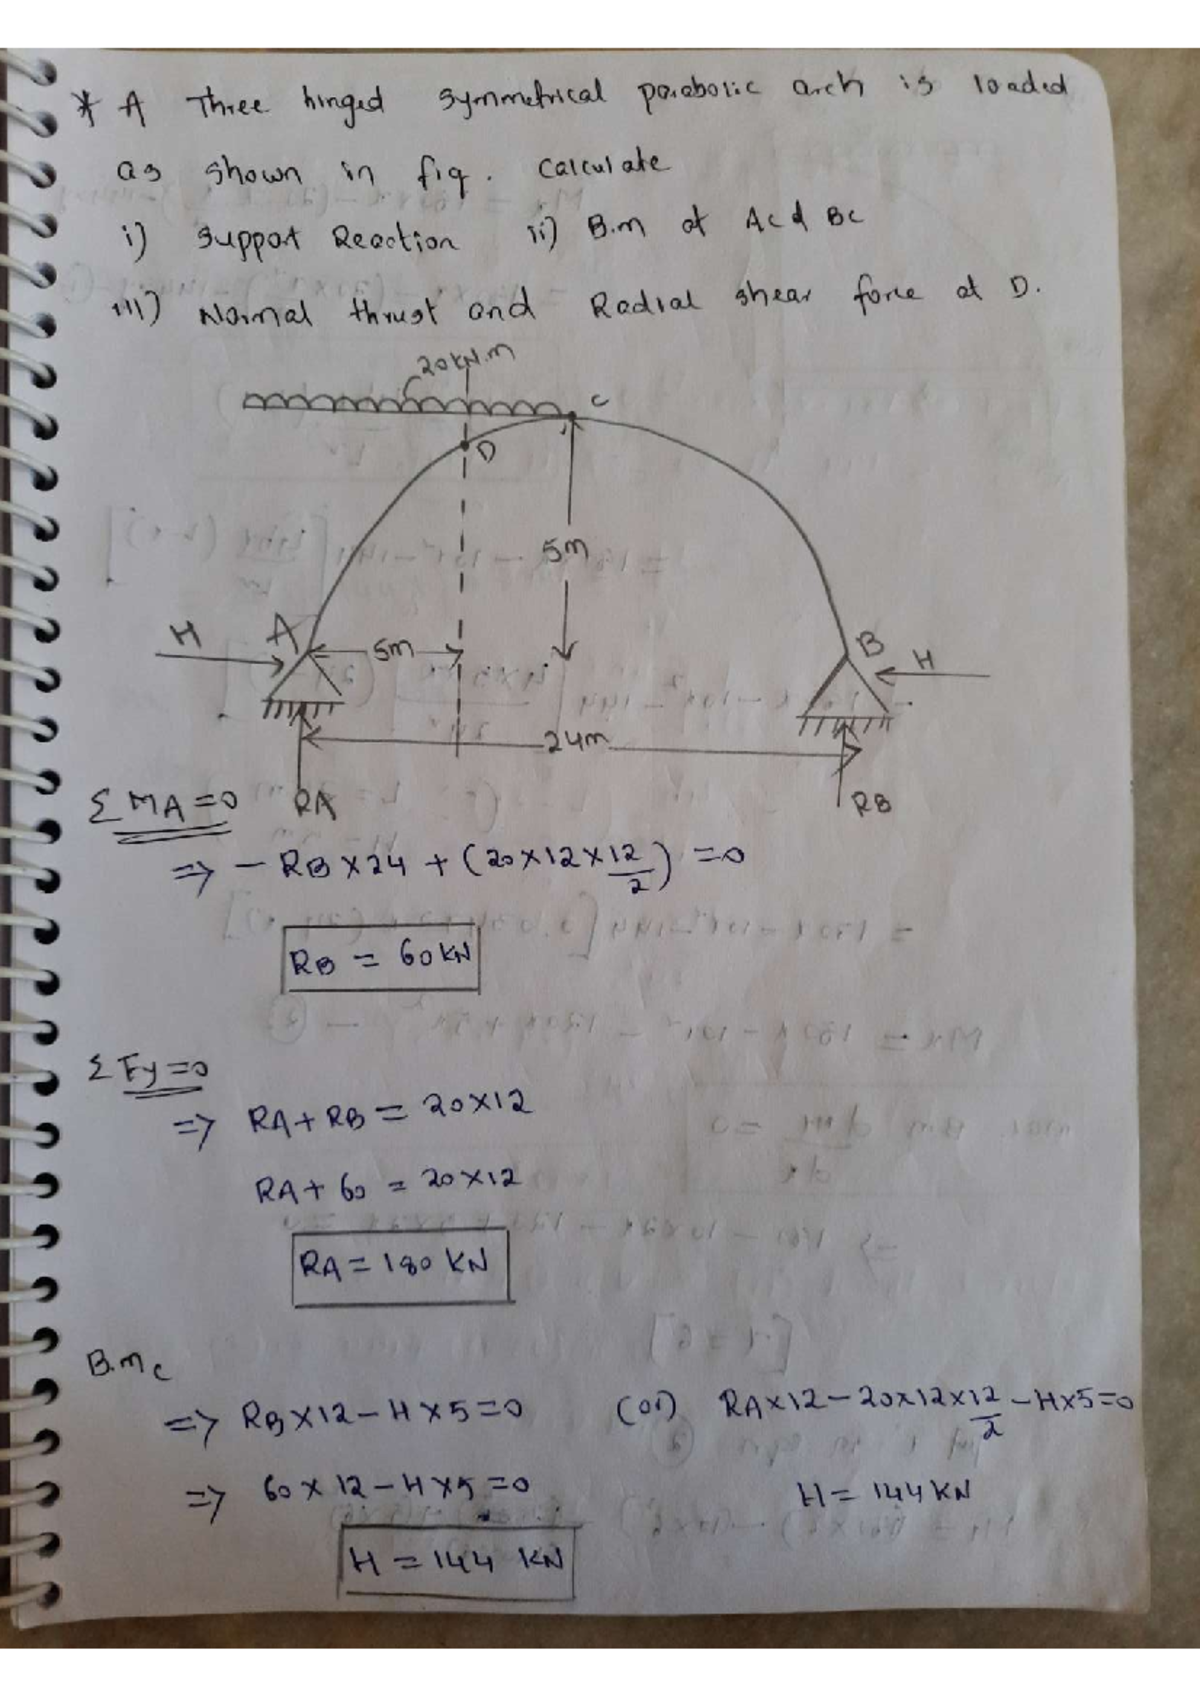 * A Three hinged symmetrical parabolic arch is loaded
as shown in fig. Calculate
i) Support Reaction ii) B.m at AC & BC
iii) Normal thrust and Radial shear force at D.
20KN.m
C
D
5m
H A 5m B H
24m
RA RB
Σ MA=0
=> - RB×24 + (20×12×12/2) =0
RB = 60KN
Σ Fy=0
=> RA+RB = 20×12
RA+60 = 20×12
RA = 180 KN
B.mc
=> RB×12-H×5=0 (or) RA×12-20×12×12/2-H×5=0
=> 60×12-H×5=0 H= 144KN
H = 144 KN